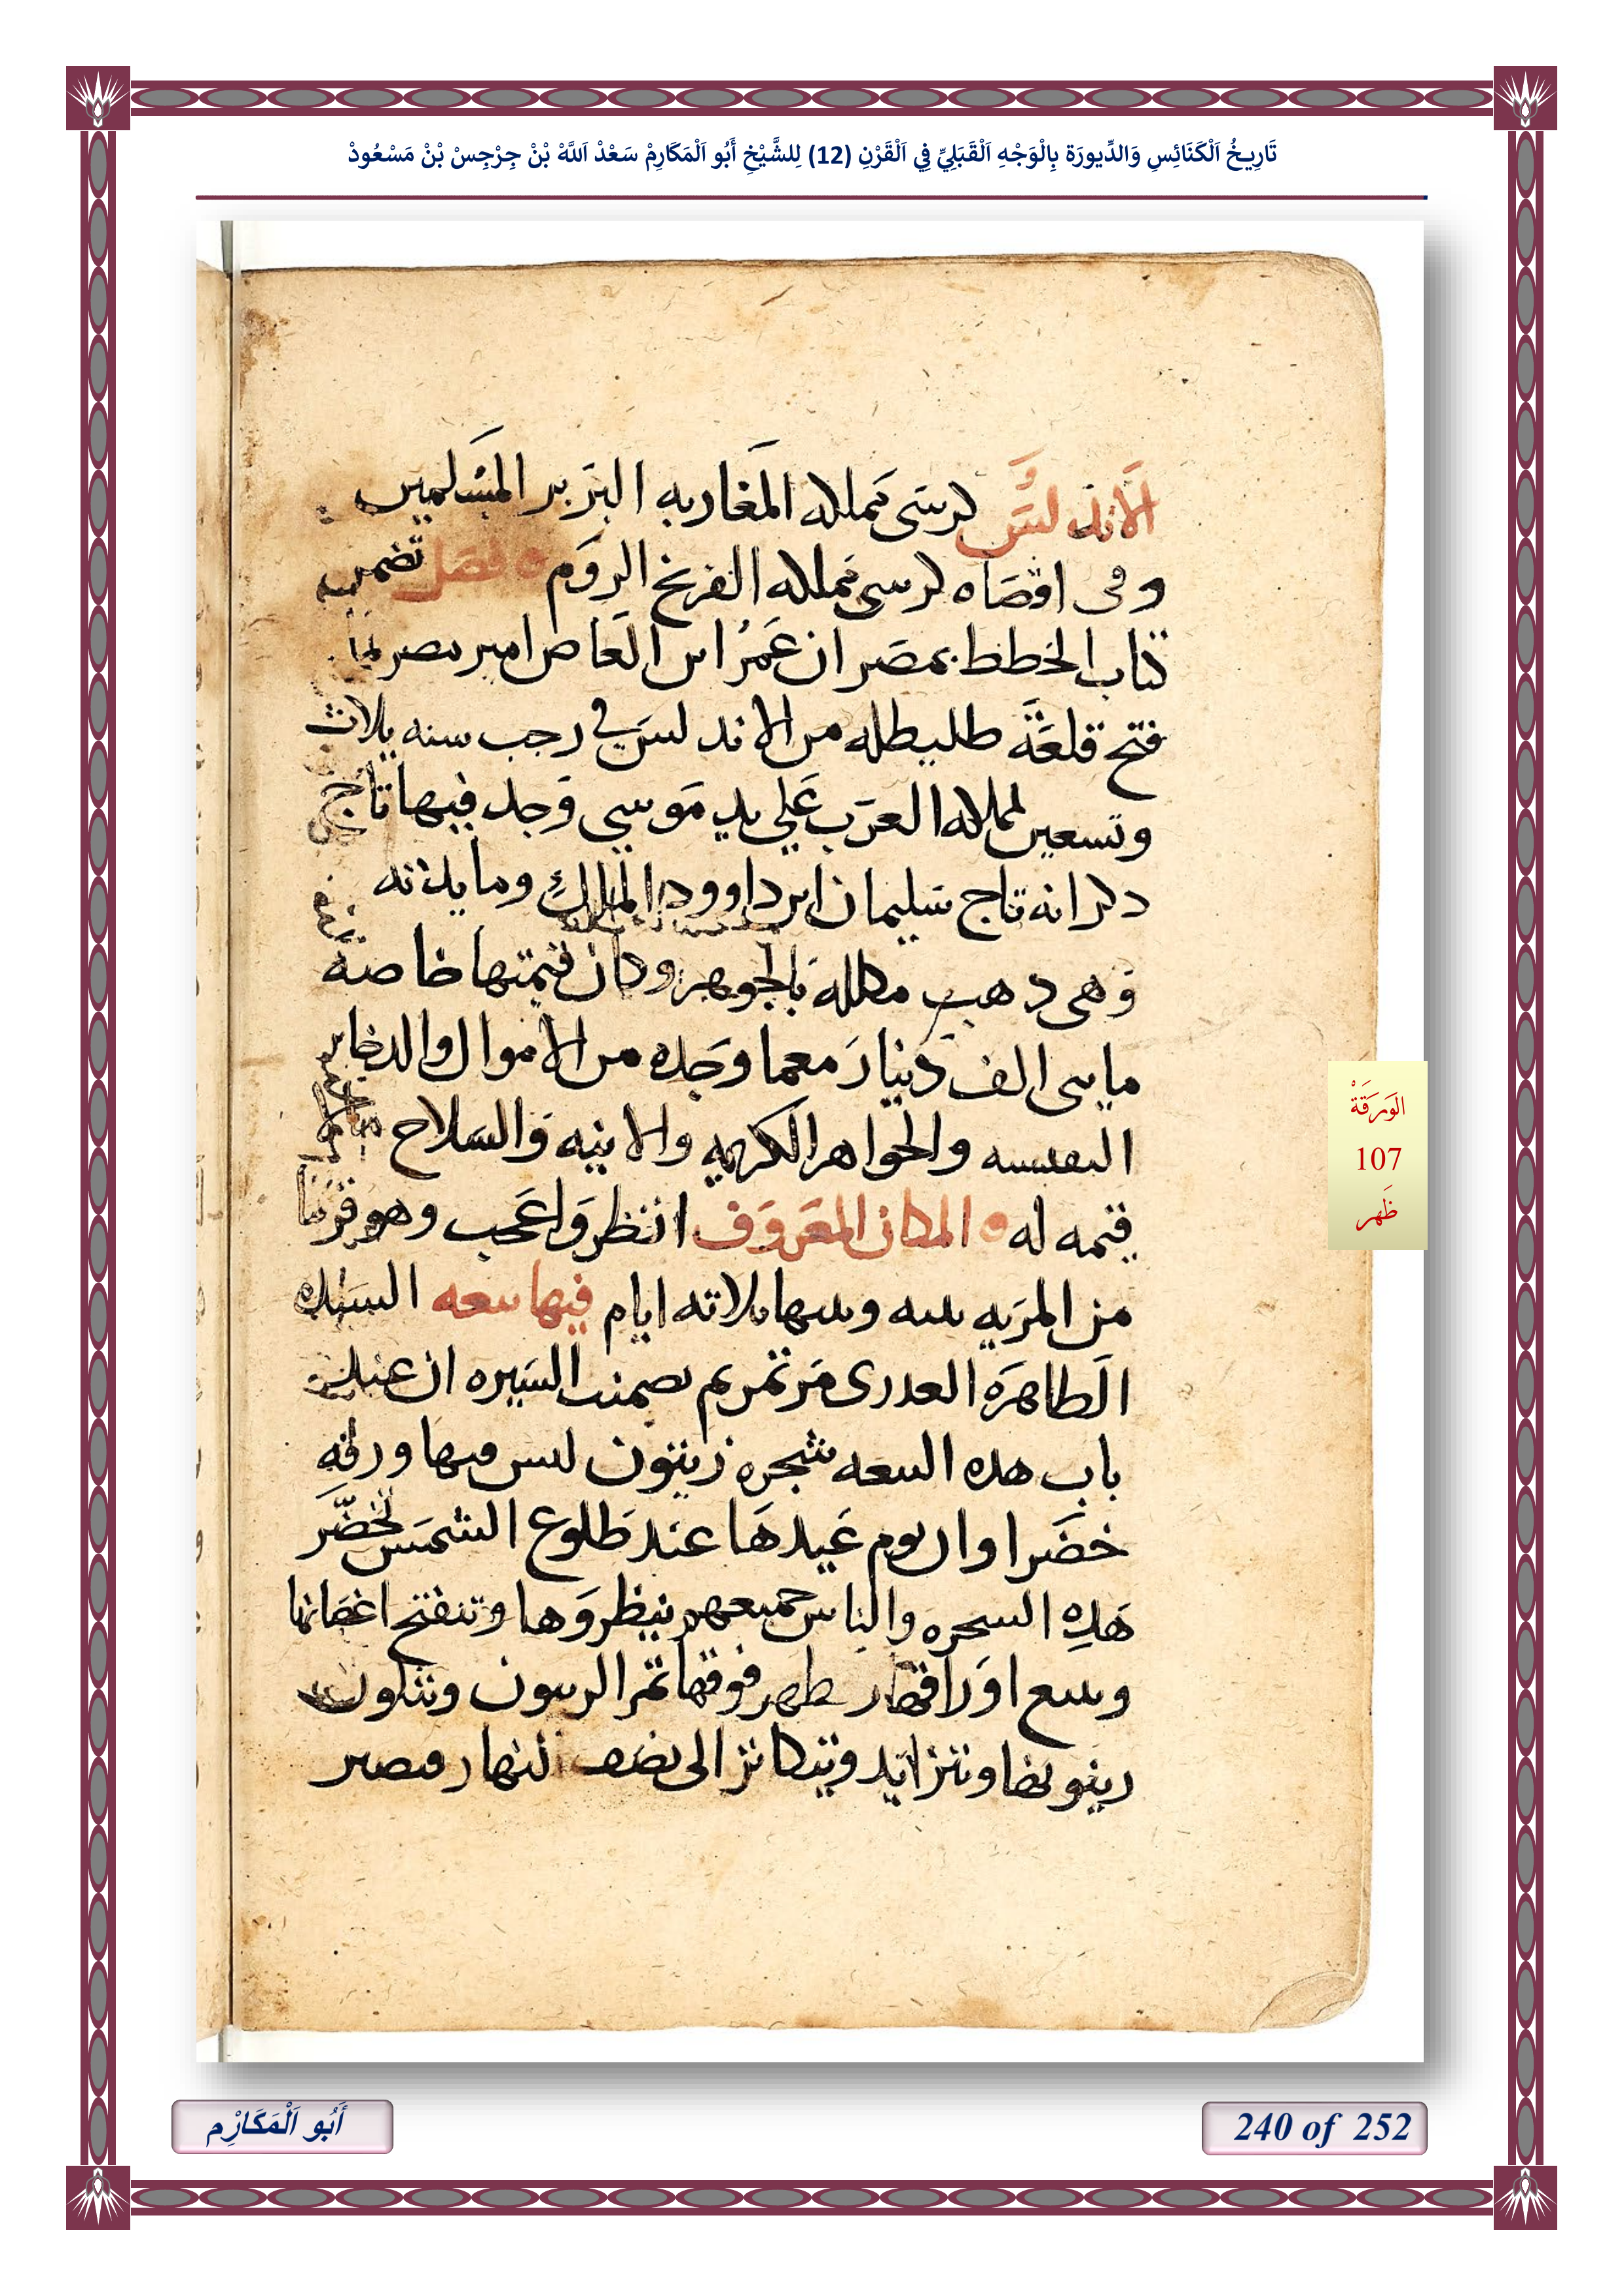 تَارِيخُ اَلْكَنَائِسِ وَالدِّيورَة بِالْوَجْهِ اَلْقَبَلِيِّ فِي اَلْقَرْنِ (12) لِلشَّيْخِ أَبُو اَلْمَكَارِمْ سَعْدْ اَللَّهْ بْنْ جِرْجِسْ بْنْ مَسْعُودْ
الاندلس كرسى مملكه المغاربه البربر المسلمين
وفى اقصاه كرسى مملكه الفرنج الروم فصل تضمن
كتاب الخطط بمصر ان عمر ابن العاص امير مصر لما
فتح قلعة طليطله من الاندلس في رجب سنه ثلاث
وتسعين لمملكه العرب على يد موسى وجد فيها تاج
ذكر انه تاج سليمان ابن داوود الملك ومايدته
وهى ذهب مكلله بالجوهر وكان قيمتها خاصة
مايتى الف دينار معما وجده من الاموال والدخاير
النفيسه والجواهر الكريمه والانيه والسلاح
قيمه له المكان المعروف انظر واعجب وهو قريبا
من المريه بينه وبينها ثلاثه ايام فيها بيعه السيده
الطاهره العدرى مرتمريم تضمنت السيره ان عند
باب هذه البيعه شجره زيتون ليس فيها ورقه
خضرا وان يوم عيدها عند طلوع الشمس تخضر
هذه الشجره والناس جميعهم ينظروها وتنفتح اغصانها
وتتسع اوراقها ظهر فوقها ثمر الزيتون وتتكون
زيتونها وتتزايد وتتكاثر الى نصف النهار فتصير
الوَرَقَةْ
107
ظَهر
أَبُو اَلْمَكَارِم
240 of 252